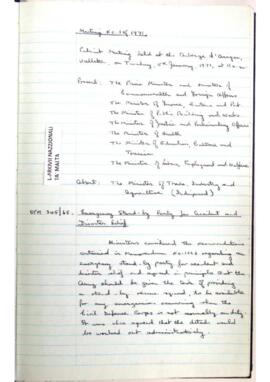 Meeting No. 1 of 1971
Cabinet Meeting held at the Auberge d'Aragon,
Valletta, on Tuesday, 5th January, 1971, at
Present: The Prime Minister and Minister of
Commonwealth and Foreign Affairs
The Minister of Finance, Customs and Port
The Minister of Public Building and Works
The Minister of Justice and Parliamentary Affairs
The Minister of Health
The Minister of Education, Culture and
Tourism
The Minister of Labour, Employment and Welfare
Absent: The Minister of Trade, Industry and
Agriculture (Indisposed)
OPM 345/65. Emergency Stand-by Party for Accident and
Disaster Relief
Ministers considered the recommendations
contained in Memorandum No. regarding an
emergency stand-by party for accident and
disaster relief and agreed in principle that the
Army should be given the task of providing
a stand-by rescue squad to be available
for any emergencies occurring when the
Civil Defence Corps is not normally on duty.
It was also agreed that the details would
be worked out administratively.
L-ARKIVJI NAZZJONALI
TA' MALTA